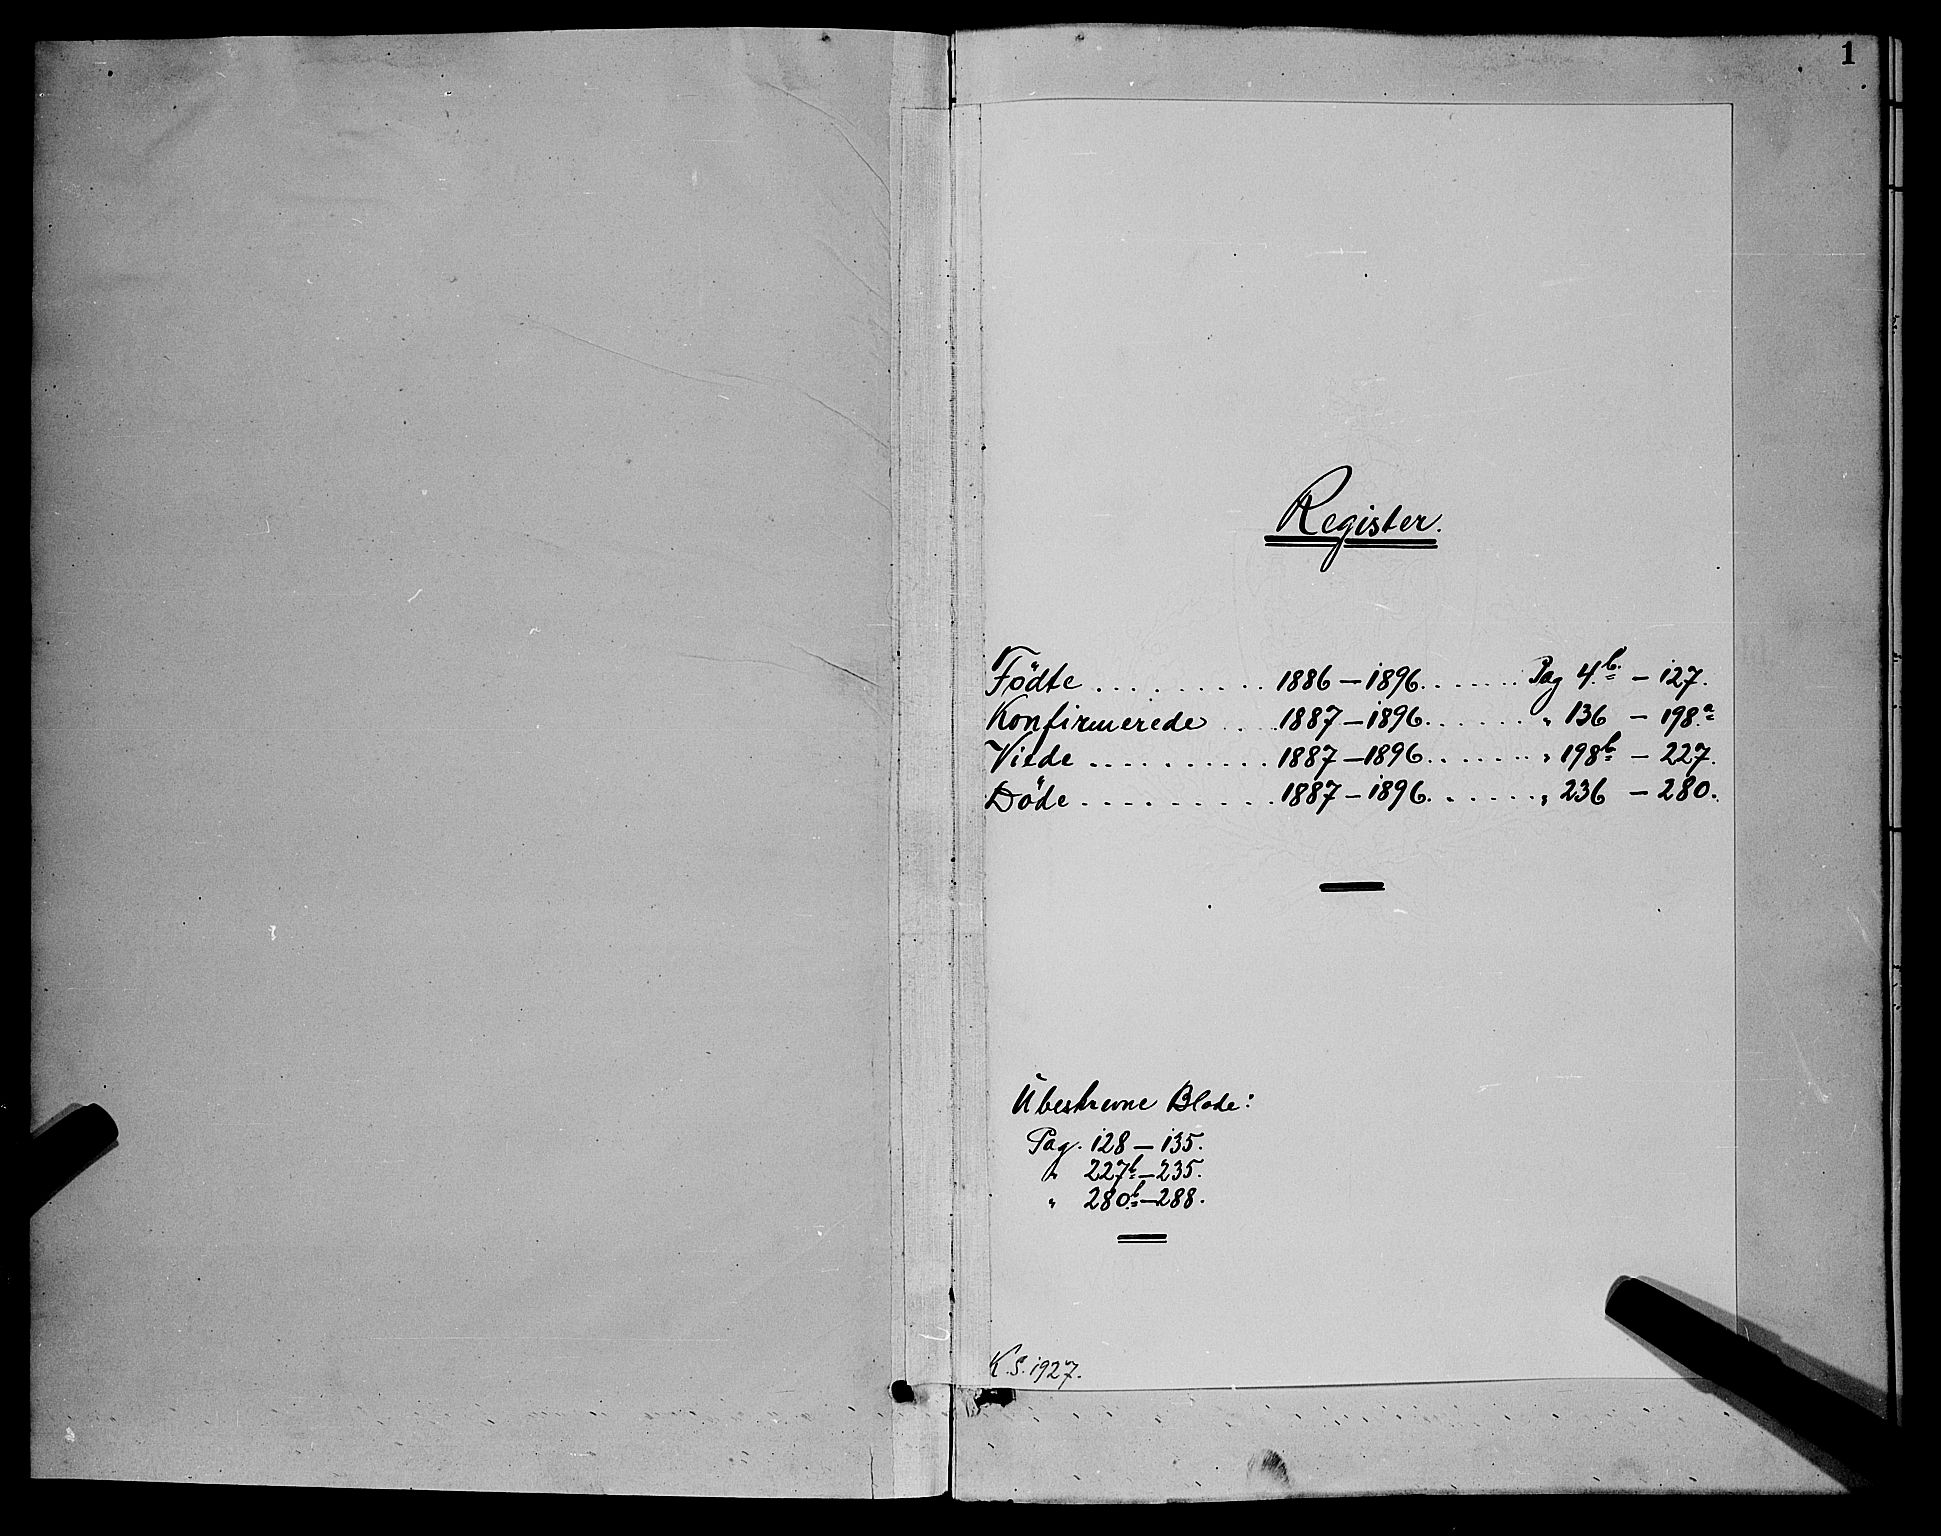 1
Register.
Födte ......... 1886 – 1896 ....... Pag 4.b. – 127.
Konfirmerede .... 1887 – 1896 ...... „ 136 – 198.a
Viede .......... 1887 – 1896 ...... „ 198b – 227.
Döde .......... 1887 – 1896 ...... „ 236 – 280.
Ubeskrevne Blade:
Pag. 128 – 135.
„ 227b – 235.
„ 280.b – 288.
K.S. 1927.